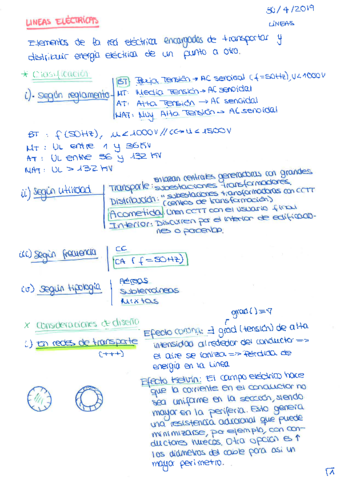 30/4/2019
LÍNEAS
LINEAS ELÉCTRICAS
Elementos de la red eléctrica encargados de transportar y
distribuir energía eléctrica de un punto a otro.
* Clasificación
i) Según reglamento
BT: Baja Tensión → AC senoidal (f=50Hz), U<1000V
MT: Media Tensión → AC senoidal
AT: Alta Tensión → AC senoidal
MAT: Muy Alta Tensión → AC senoidal
BT: f(50Hz), U<1000V // CC → U<1500V
MT: UL entre 1 y 36KV
AT: UL entre 36 y 132 KV
MAT: UL > 132 KV
ii) Según utilidad
Transporte: enlazan centrales generadoras con grandes
subestaciones transformadoras
Distribución: subestaciones transformadoras con CCTT
(centros de transformación)
Acometida: Unen CCTT con el usuario final
Interior: Discurren por el interior de edificacio-
nes o parcelas.
iii) Según frecuencia
CC
CA (f=50Hz)
iv) Según tipología
Aéreas
Subterráneas
Mixtas
* Consideraciones de diseño
grad()=∇
i) En redes de transporte
(+++)
Efecto corona: El grad(tensión) de alta
intensidad alrededor del conductor =>
el aire se ioniza => Pérdida de
energía en la línea
Efecto Kelvin: El campo eléctrico hace
que la corriente en el conductor no
sea uniforme en la sección, siendo
mayor en la periferia. Esto genera
una resistencia adicional que puede
minimizarse, por ejemplo, con con-
ductores huecos. Otra opción es ↑
los diámetros del cable para así un
mayor perímetro.